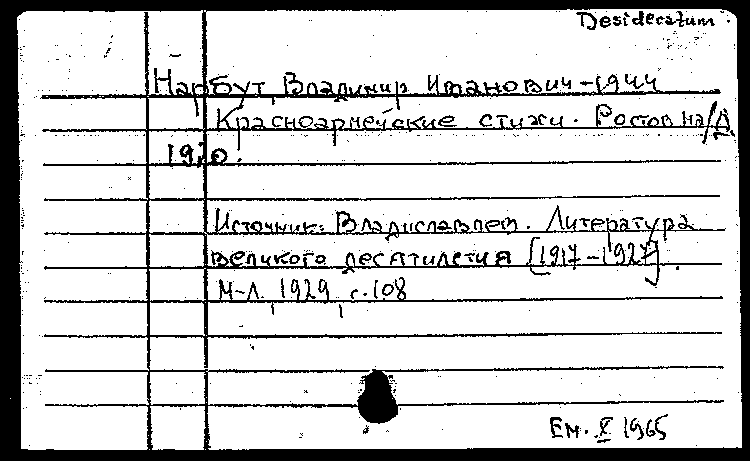 Desideratum
Нарбут, Владимир Иванович -1944
Красноармейские стихи. Ростов на/Д
1920.
Источник: Владиславлев. Литература
великого десятилетия [1917-1927].
М-Л, 1929, с.108
Ем. X 1965